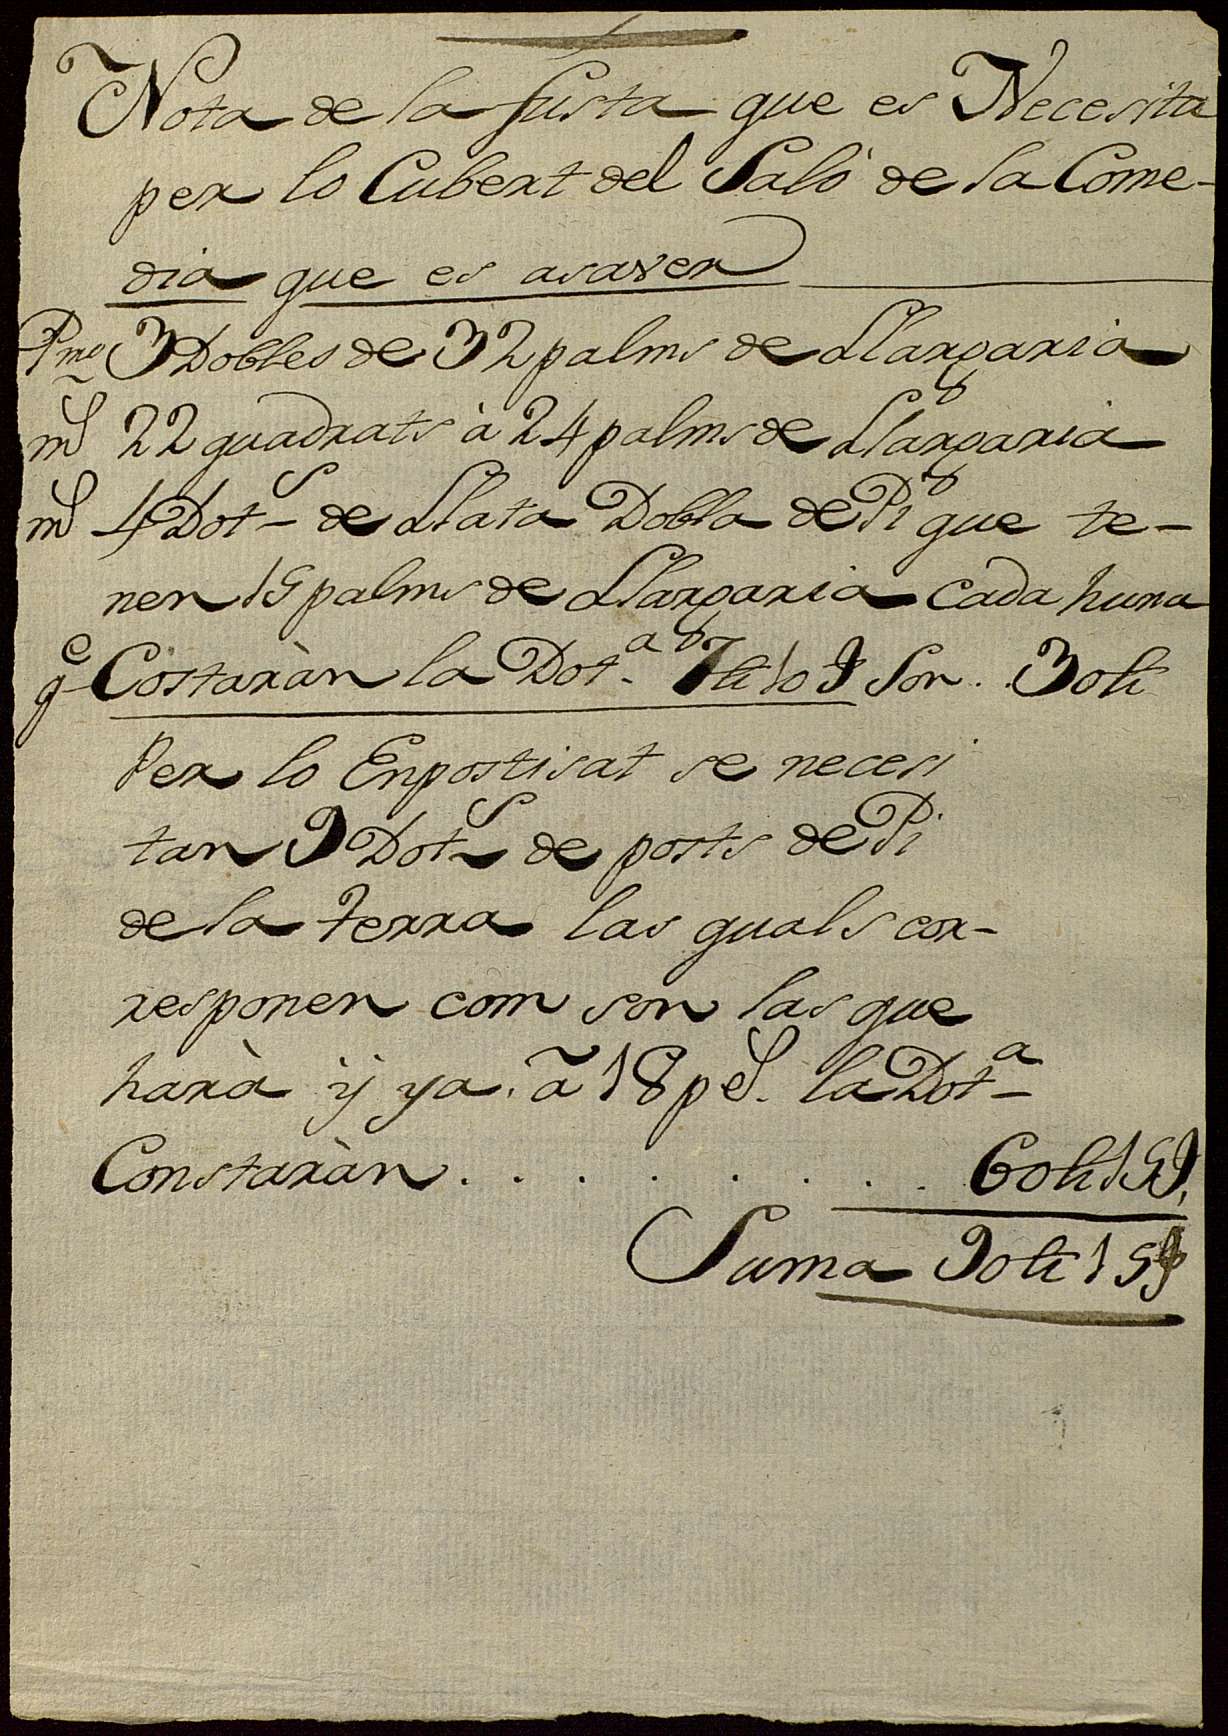 Nota de la fusta que es Necesita
per lo Cubert del Saló de la Come-
dia que es asaver
Pmo. 3 Dobles de 32 palms de Llargaria
mS 22 quadrats à 24 palms de Llargaria
mS 4 Dot.s de Llata Dobla de Pi que te-
nen 15 palms de Llargaria cada huna
q.e Costaràn la Dot.a 7 ₶ 10 S Son . . 30 ₶
Per lo Enpostisat se necesi
tan 9 Dot.s de posts de Pi
de la terra las quals cor-
responen com son las que
harà ÿ ya. ã 18 peS. la Dot.a
Constaràn . . . . . . . . 60 ₶ 15 S,
Suma 90 ₶ 15 S